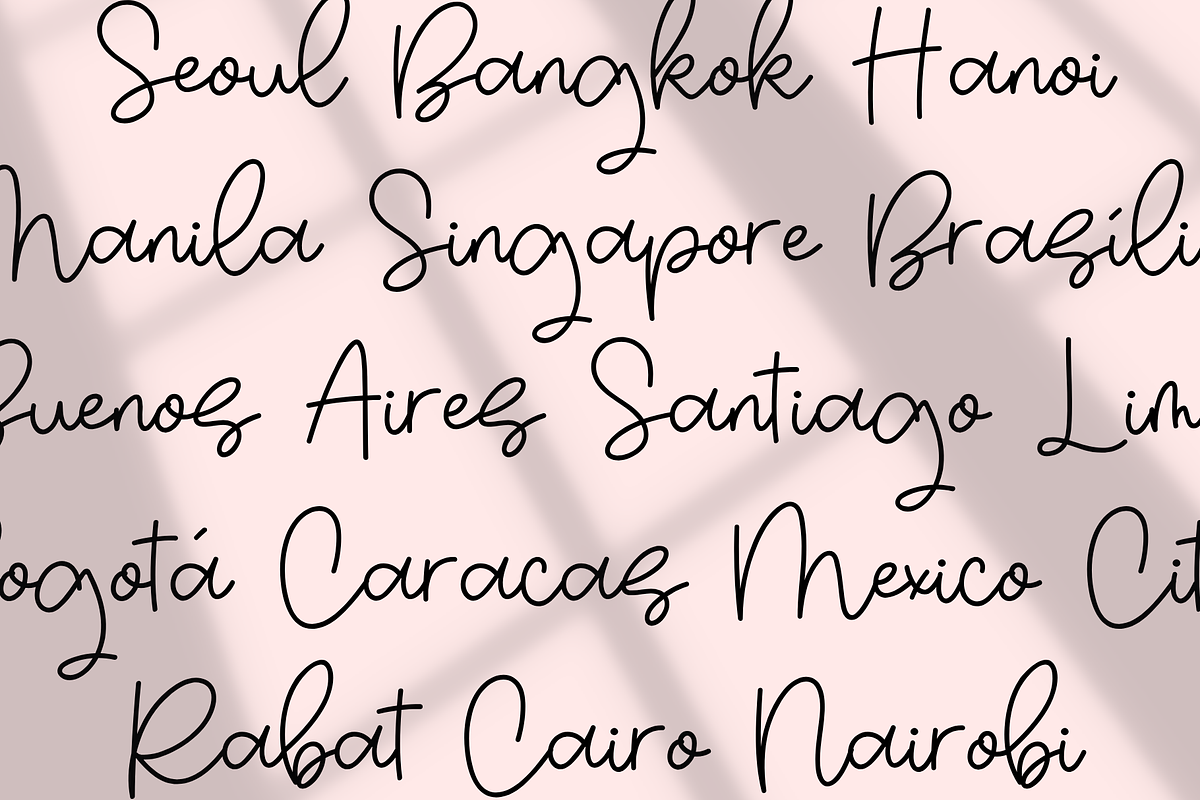 Seoul Bangkok Hanoi
Manila Singapore Brasíli
Buenos Aires Santiago Lim
ogotá Caracas Mexico Cit
Rabat Cairo Nairobi